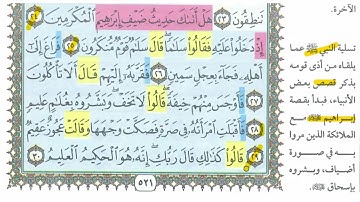 تنطِقُونَ ٢٣ هَلْ أَتَىٰكَ حَدِيثُ ضَيْفِ إِبْرَٰهِيمَ ٱلْمُكْرَمِينَ ٢٤
إِذْ دَخَلُوا۟ عَلَيْهِ فَقَالُوا۟ سَلَٰمًا ۖ قَالَ سَلَٰمٌ قَوْمٌ مُّنكَرُونَ ٢٥ فَرَاغَ إِلَىٰٓ
أَهْلِهِۦ فَجَآءَ بِعِجْلٍ سَمِينٍ ٢٦ فَقَرَّبَهُۥٓ إِلَيْهِمْ قَالَ أَلَا تَأْكُلُونَ
٢٧ فَأَوْجَسَ مِنْهُمْ خِيفَةً ۖ قَالُوا۟ لَا تَخَفْ ۖ وَبَشَّرُوهُ بِغُلَٰمٍ عَلِيمٍ
٢٨ فَأَقْبَلَتِ ٱمْرَأَتُهُۥ فِى صَرَّةٍ فَصَكَّتْ وَجْهَهَا وَقَالَتْ عَجُوزٌ عَقِيمٌ
٢٩ قَالُوا۟ كَذَٰلِكِ قَالَ رَبُّكِ ۖ إِنَّهُۥ هُوَ ٱلْحَكِيمُ ٱلْعَلِيمُ ٣٠
٥٢١
الآخرة.
تسلية النبي ﷺ عما
يلقاه من أذى قومه
بذكر قصص بعض
الأنبياء، فبدأ بقصة
إبراهيم ﷺ مع
الملائكة الذين مروا
به في صورة
أضياف، وبشروه
بإسحاق ﷺ.